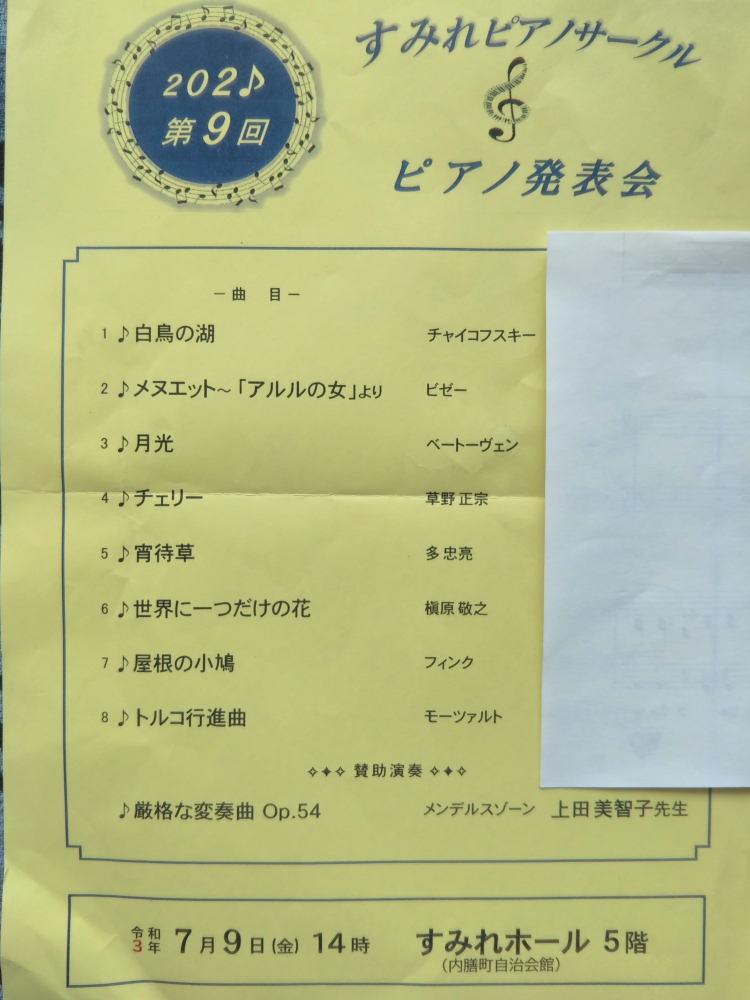 すみれピアノサークル
202♪
第9回
ピアノ発表会
－曲 目－
1 ♪白鳥の湖 チャイコフスキー
2 ♪メヌエット～「アルルの女」より ビゼー
3 ♪月光 ベートーヴェン
4 ♪チェリー 草野 正宗
5 ♪宵待草 多 忠亮
6 ♪世界に一つだけの花 槇原 敬之
7 ♪屋根の小鳩 フィンク
8 ♪トルコ行進曲 モーツァルト
✧✦✧ 賛助演奏 ✧✦✧
♪厳格な変奏曲 Op.54 メンデルスゾーン 上田 美智子先生
令和3年 7月9日(金) 14時 すみれホール 5階
（内膳町自治会館）